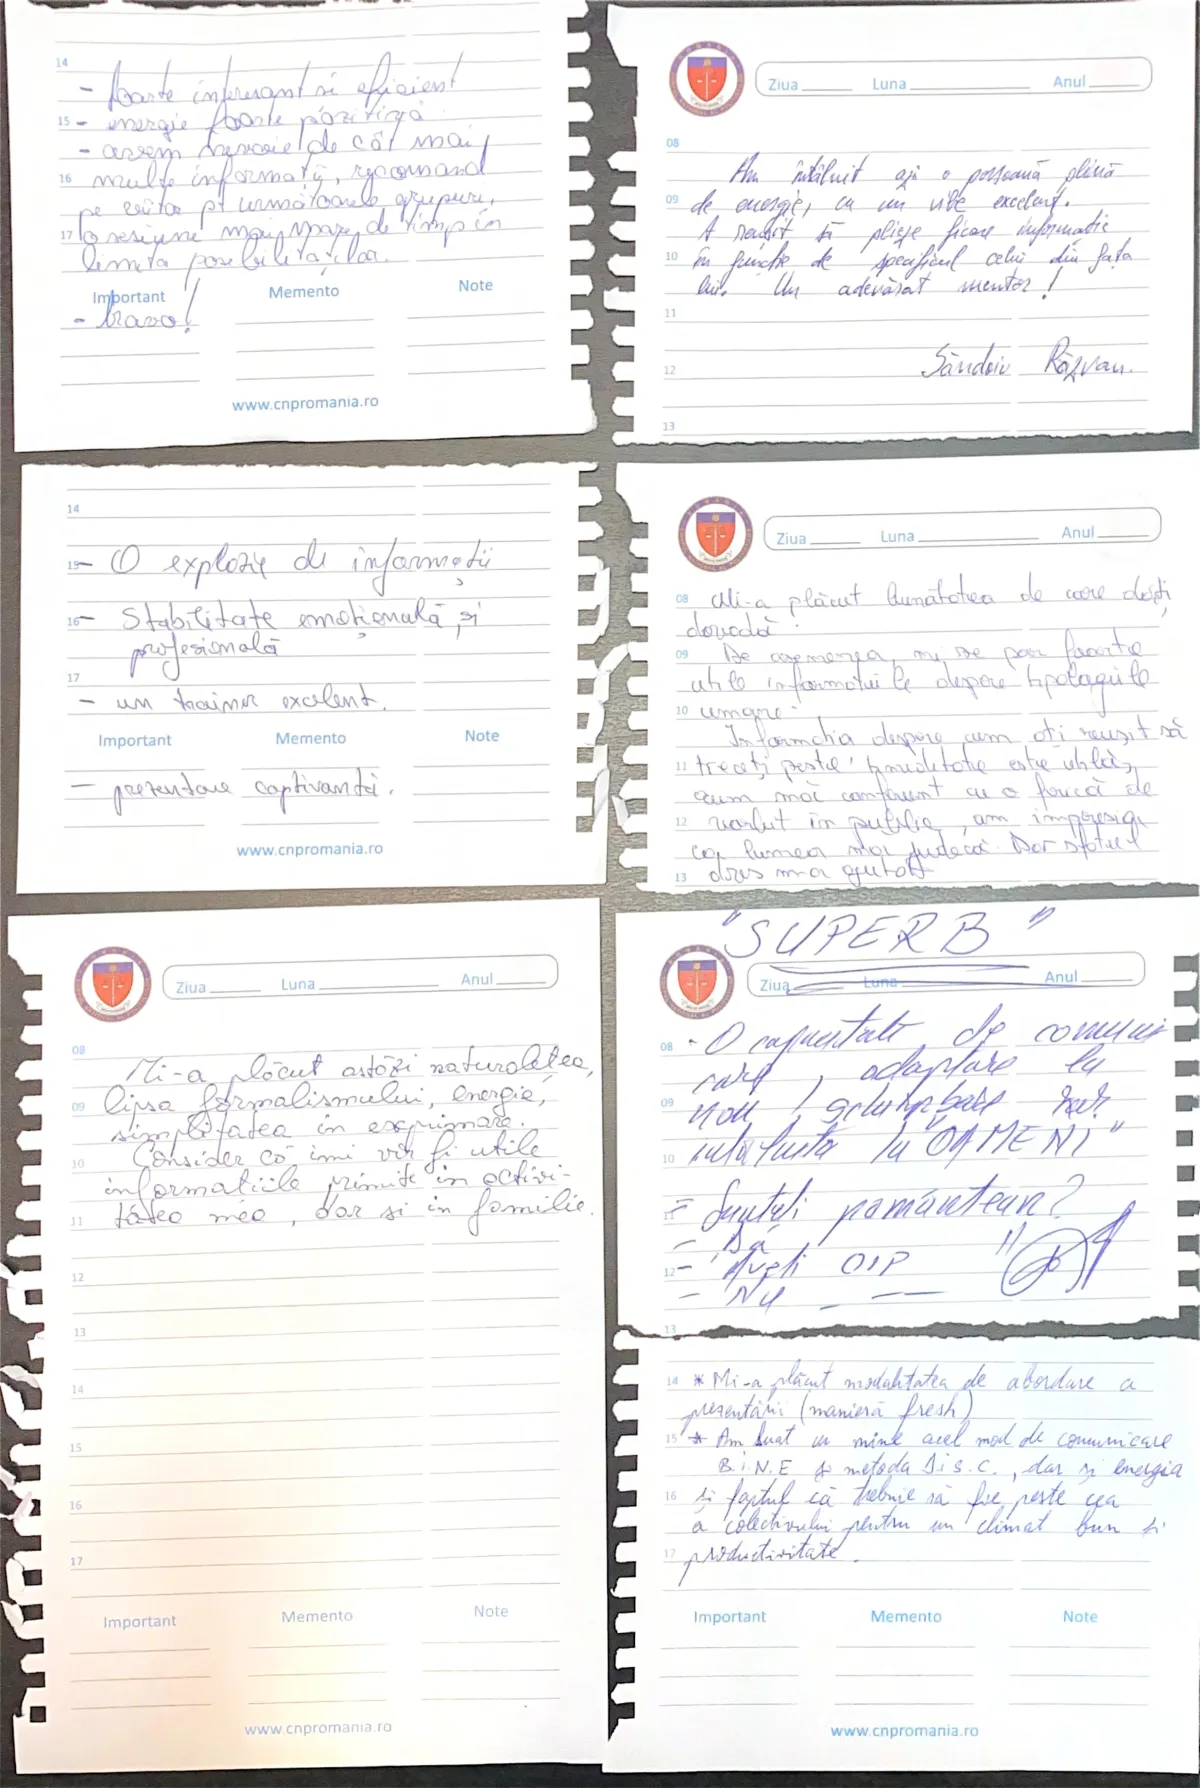 14
- foarte interesant si eficient
15 - energie foarte pozitivă
- avem nevoie de cât mai
16 multe informatii, recomand
pe viitor pt următoarele grupuri,
17 o sesiune mai mare de timp în
limita posibilitatilor.
Important Memento Note
- bravo!
www.cnpromania.ro
Ziua Luna Anul
08
Am întâlnit azi o persoană plină
09 de energie, cu un vibe excelent.
A reusit să plieze ficare informatie
10 în funcție de specificul celui din fata
lui. Un adevărat mentor!
11
12 Săndoiu Răzvan.
13
14
15 - O explozie de informații
16 - Stabilitate emoțională și
profesională
17
- un trainer excelent.
Important Memento Note
- prezentare captivantă.
www.cnpromania.ro
Ziua Luna Anul
08 Mi-a plăcut bunătatea de care dați
dovadă.
09 De asemenea, mi se par foarte
utile informatiile despre tipologiile
10 umane.
Informatia despre cum ati reusit să
11 treceți peste timiditate este utilă,
cum mă confrunt cu o frică de
12 vorbit în public, am impresia
că lumea mă judecă. Dar sfatul
13 dvs m-a ajutat
Ziua Luna Anul
08
Mi-a plăcut astăzi naturalețea,
09 lipsa formalismului, energie,
simplitatea în exprimare.
10 Consider că îmi vor fi utile
informatiile primite în activi-
11 tatea mea, dar si în familie.
12
13
14
15
16
17
Important Memento Note
www.cnpromania.ro
"SUPERB"
Ziua Luna Anul
08 - O capacitate de comuni
care, adaptare la
09 nou,
10 la OAMENI"
11 - Sunteți pământean?
- Da
12 - Aveti OIP
- Nu
13
14 * Mi-a plăcut modalitatea de abordare a
prezentării (manieră fresh)
15 * Am luat cu mine acel mod de comunicare
B.I.N.E și metoda D.I.S.C., dar și energia
16 și faptul că trebuie să fie peste cea
a colectivului pentru un climat bun și
17 productivitate.
Important Memento Note
www.cnpromania.ro